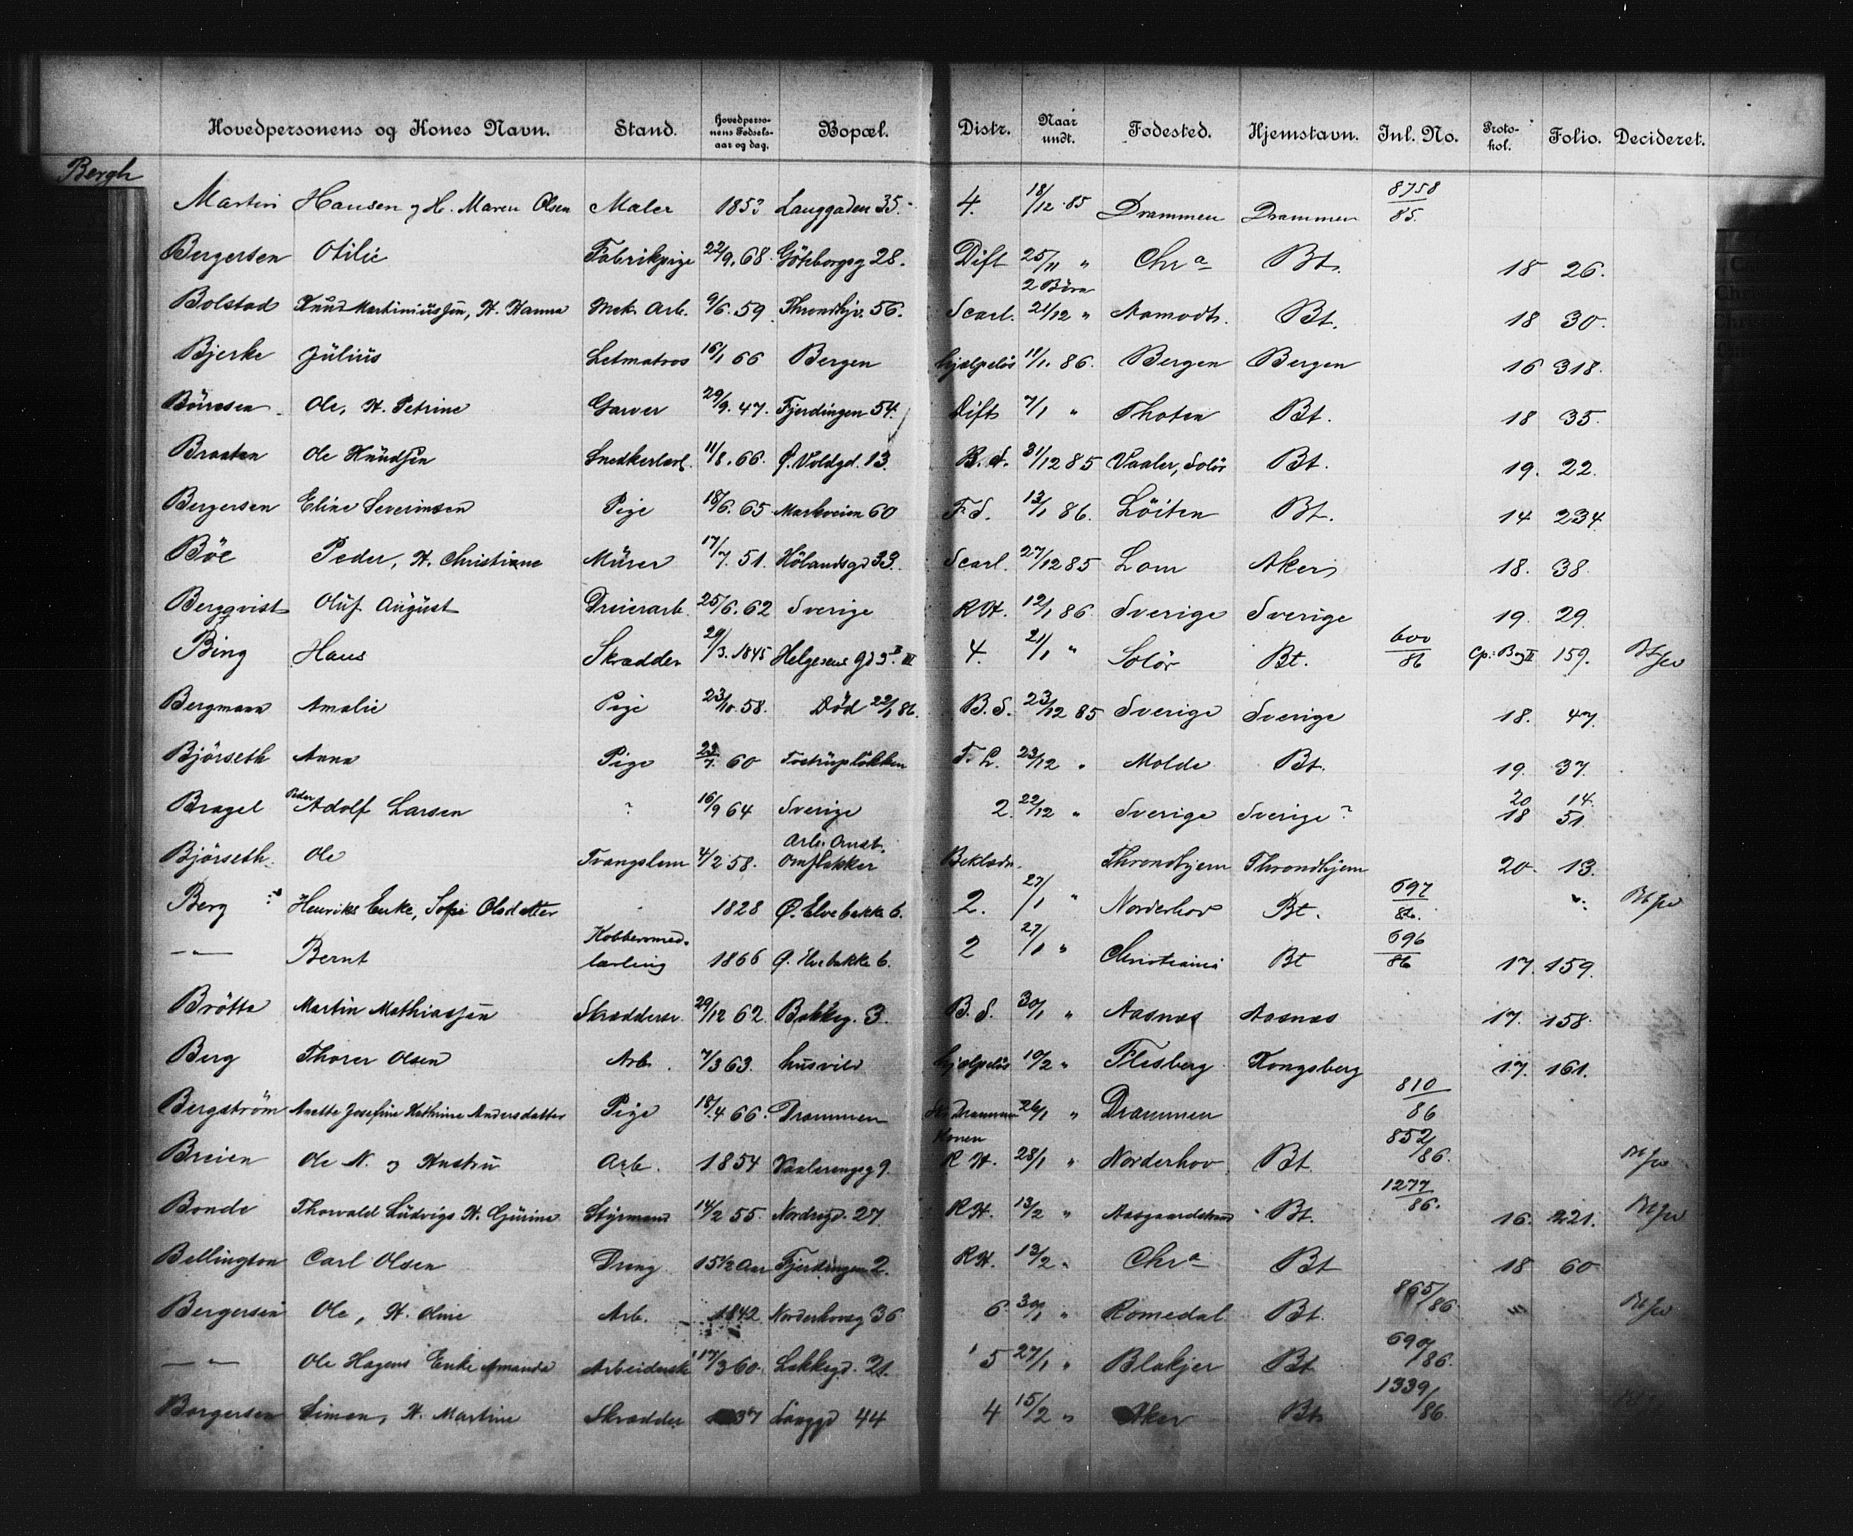 Hovedpersonens og Kones Navn. Stand. Hovedperso-nens Fødsels-aar og dag. Bopæl. Distr. Naar undt. Fødested. Hjemstavn. Inl. No. Proto-kol. Folio. Decideret.
Bergh
Martin Hansen og H. Maren Olsen Maler 1853 Langgaden 35. 4. 18/12 85 Drammen Drammen 8758/85.
Bergersen Otilie Fabrikpige 22/9. 68. Göteborgsg 28. Dift 25/11 " Chra Bt. 18 26.
2 Börn
Bolstad Knut Martiniussen, H. Hanna Mek. Arb. 9/6. 59. Throndhjv. 56. Scarl. 21/12 " Aamodt. Bt. 18 30.
Bjerke Julius Letmatros 16/1 66 Bergen hjælpeløs 11/1. 86. Bergen Bergen 16 318.
Börresen Ole, H. Petrine Garver 29/9. 47. Fjerdingen 54. Difts 7/1 " Thoten Bt. 18 35.
Braaten Ole Knudsen Snedkerlærl. 11/8. 66. Ø. Voldgd. 13. B. S. 31/12 85 Vaaler, Solör Bt. 19. 22.
Bergersen Eline Severinsen Pige 18/6. 65 Markveien 60 F. S. 13/1 86. Löiten Bt. 14 234.
Böe Peder, H. Christiane Murer 17/7. 51. Hölandsgd 33. Scarl. 27/12 85 Lom Aker 18. 38.
Bergqvist Oluf August Dreierarb. 25/6. 62 Sverige R H. 12/1 86. Sverige Sverige 19. 29.
Bing Hans Skrædder 29/3. 1845 Helgesens gd 3 II III 4. 21/1 " Solör Bt. 600/86 Cp. Bog II 159.
Bergmann Amalie Pige 23/10. 58. Död 22/1 86. B. S. 23/12 85 Sverige Sverige 18. 47.
Björseth Anna Pige 23/7. 60 Tostrupløkken F. L. 23/12 " Molde Bt. 19. 37.
Bragel Peder Adolf Larsen ? 16/9 64 Sverige 2. 22/12 " Sverige Sverige ? 20 14. 18 51.
Björseth. Ole Tvangslem 4/2. 58. Arb. Anst. omflakker Throndhjem Throndhjem 20. 13.
Berg Henriks Enke, Sofie Olsdatter 1828 Ø. Elvebakke 6. 2. 27/1 " Norderhov Bt. 697/86.
— " — Bernt Kobbersmedlærling 1866 Ø. Elvebakke 6. 2 27/1 " Christiania Bt 696/86 17. 159.
Brötta Martin Mathiassen Skræddersv. 29/12 62. Bakkeg. 3. B. S. 30/1 " Aasnæs Aasnæs 17. 158.
Berg Thorer Olsen Arb. 7/3 63. husvild hjælpeløs 10/2 " Flesberg Kongsberg 17. 161.
Bergström Anette Josefine Kathrine Andersdatter Pige 18/4 66. Drammen Drammen 26/1 " Drammen 810/86
Breien Ole N. og Hustru Arb. 1854 Vaalerengsg 9. Konen R H. 28/1 " Norderhov Bt. 852/86.
Bonde Thorvald Ludvigs H. Gurine Styrmand 14/2 55. Nordregd. 27. R H. 13/2 " Aasgaardstrand Bt. 1277/86. 16. 221.
Bellington Carl Olsen Dreng 15 1/2 Aar Fjerdingen 2. R H. 13/2 " Chra Bt 18 60
Bergersen Ole, H. Oline Arb. 1842 Norderhovsg 36 6 30/1 " Romedal Bt. 865/86.
— " — Ole Hagens Enke Amanda Arbeiderske 17/3 60. Lakkegd. 21. 5 27/1 " Blakjer Bt 690/86.
Borgersen Simon, H. Martine Skrædder 37 Langgd 44 4 15/2 " Aker Bt. 1339/86.